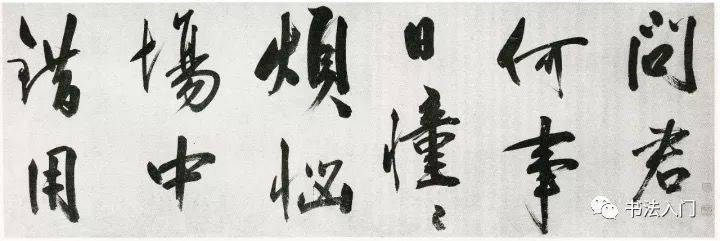 問君
何事
日憧〻
煩惱
場中
錯用
书法入门